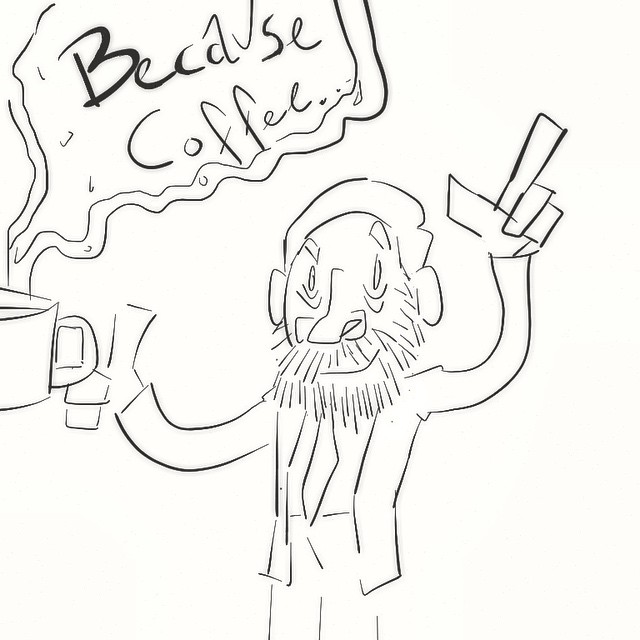 Because
Coffee...